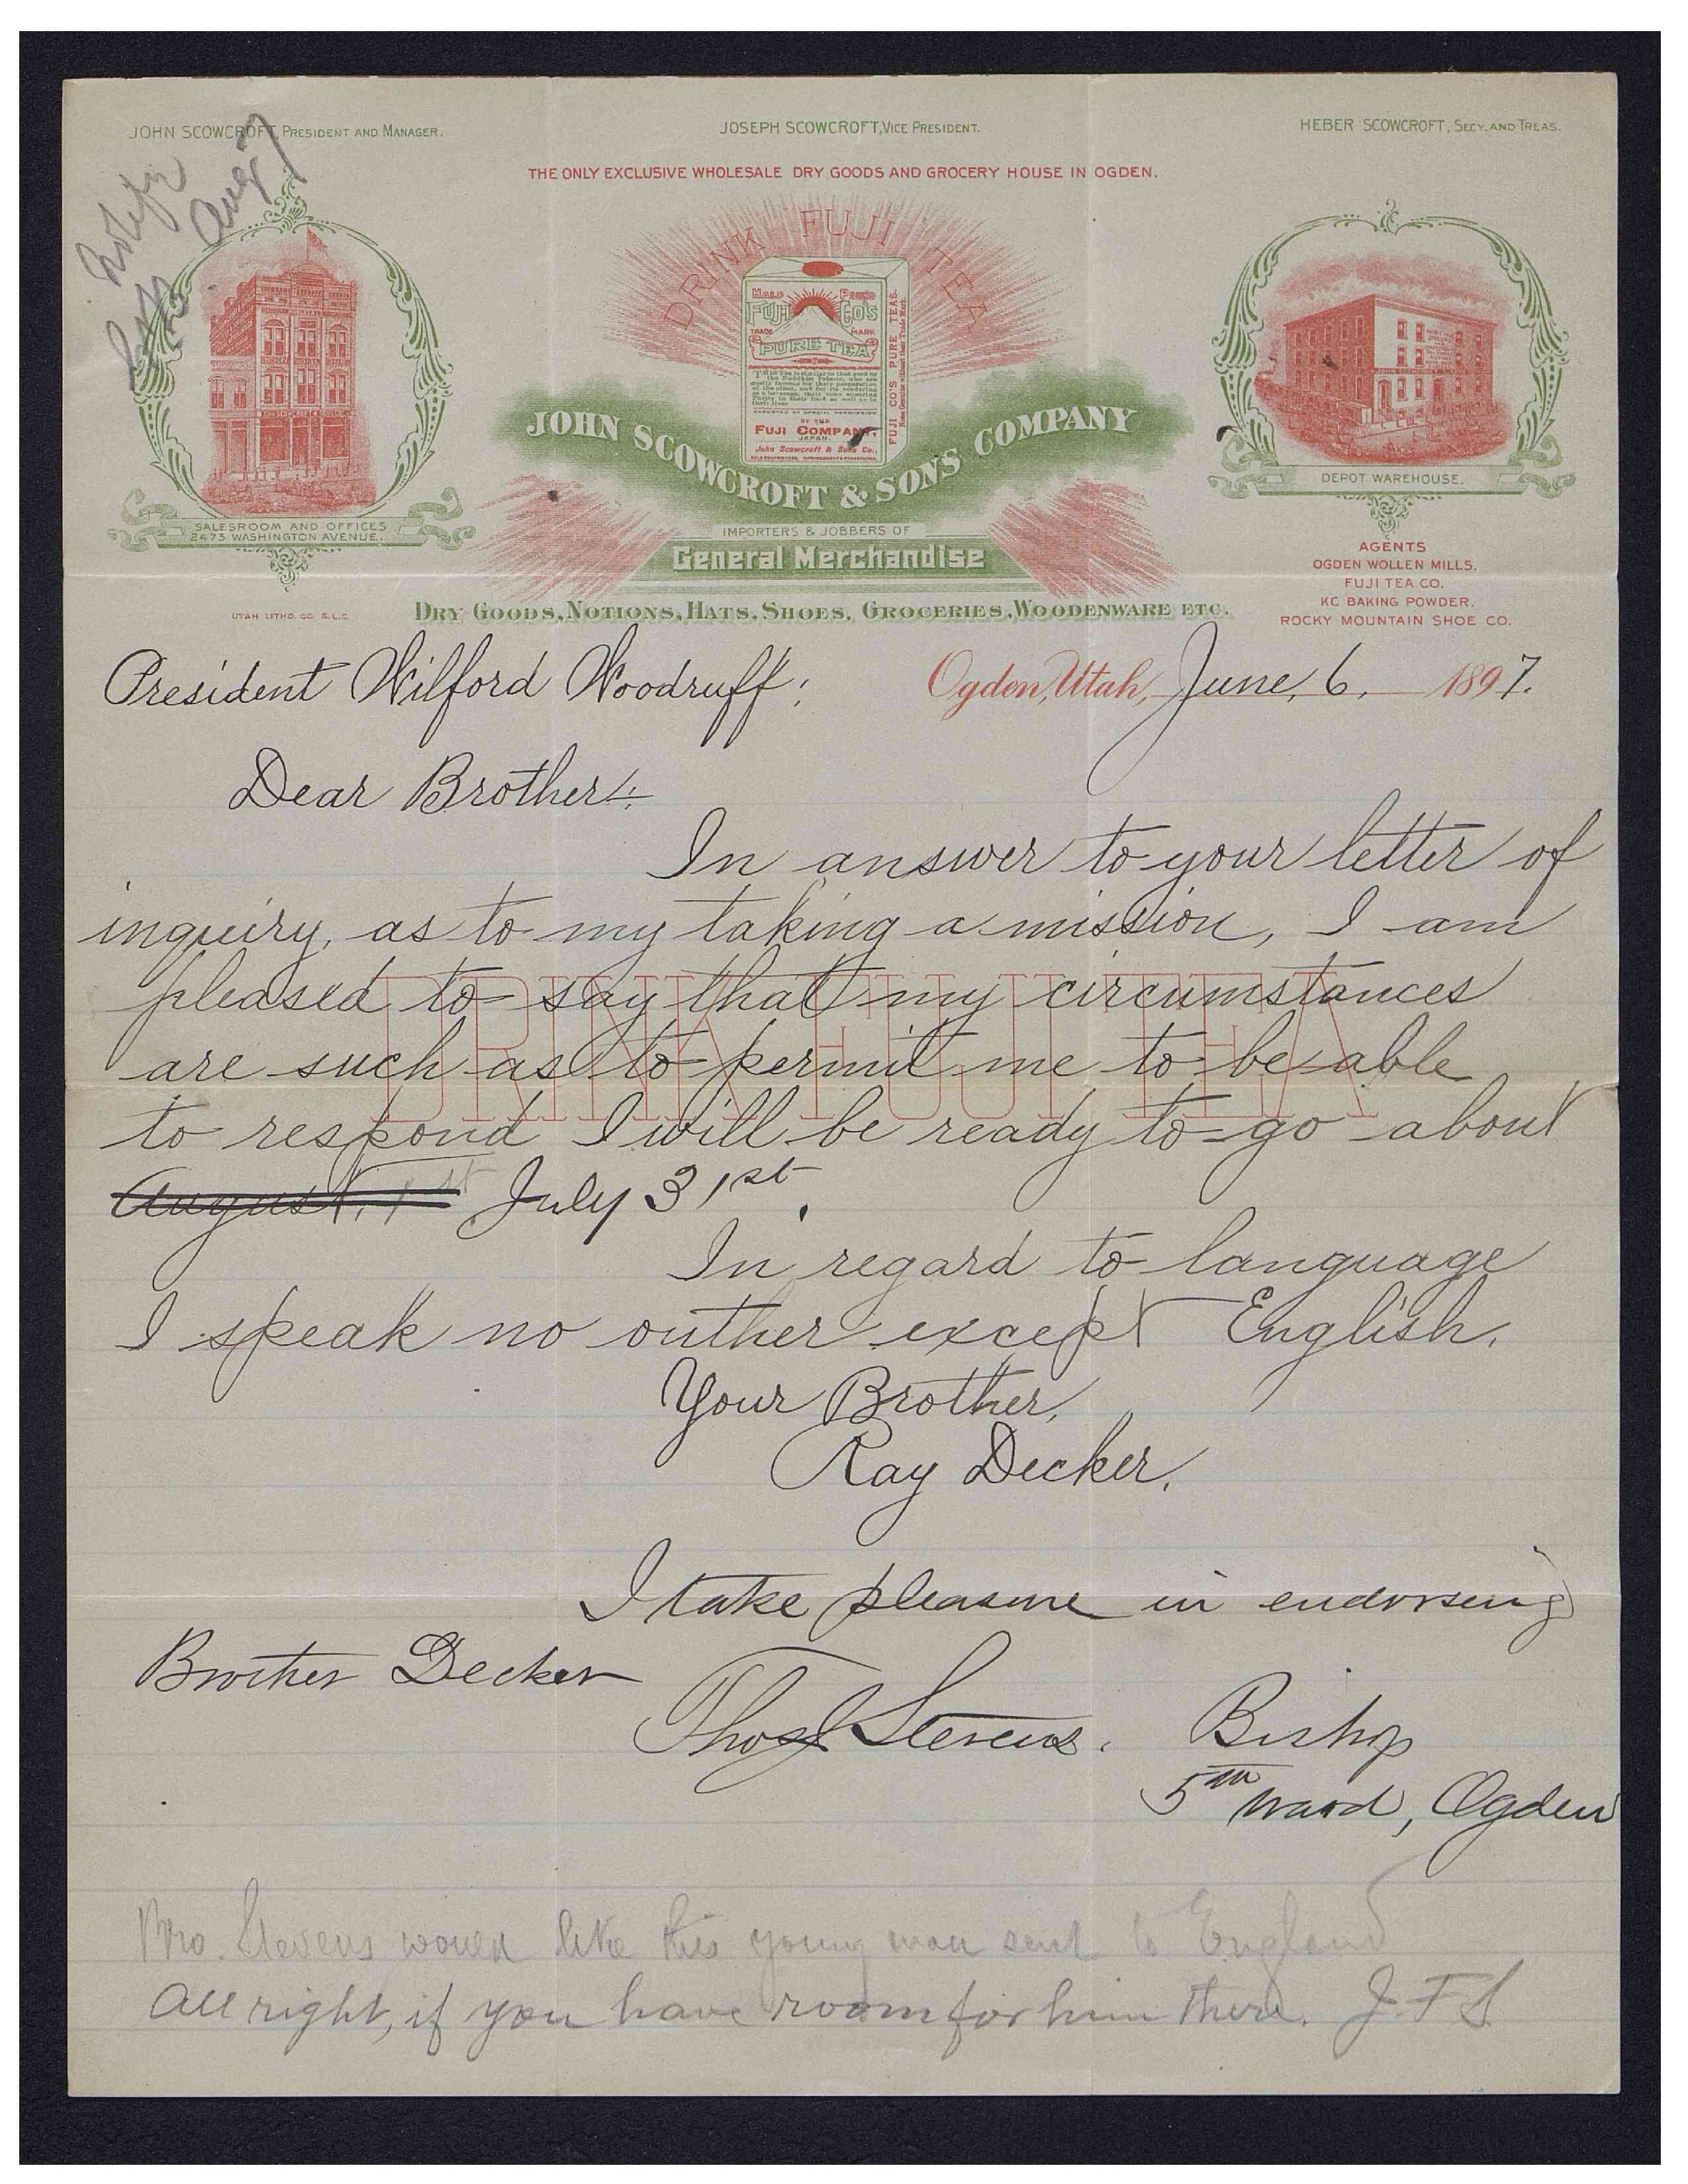 JOHN SCOWCROFT, PRESIDENT AND MANAGER.
JOSEPH SCOWCROFT, VICE PRESIDENT.
HEBER SCOWCROFT, SECY. AND TREAS.
THE ONLY EXCLUSIVE WHOLESALE DRY GOODS AND GROCERY HOUSE IN OGDEN.
Aug 7
DRINK FUJI TEA
HALF POUND
FUJI CO'S
TRADE MARK
PURE TEA
BY THE
FUJI COMPANY,
JAPAN.
John Scowcroft & Sons Co.,
FUJI CO'S PURE TEAS.
JOHN SCOWCROFT & SONS COMPANY
IMPORTERS & JOBBERS OF
General Merchandise
DRY GOODS, NOTIONS, HATS, SHOES, GROCERIES, WOODENWARE ETC.
SALESROOM AND OFFICES
2473 WASHINGTON AVENUE.
UTAH LITHO. CO. S.L.C.
DEPOT WAREHOUSE.
AGENTS
OGDEN WOLLEN MILLS.
FUJI TEA CO.
KC BAKING POWDER.
ROCKY MOUNTAIN SHOE CO.
President Wilford Woodruff: Ogden, Utah, June, 6, 1897.
Dear Brother:
In answer to your letter of
inquiry, as to my taking a mission, I am
pleased to say that my circumstances
are such as to permit me to be able
DRINK FUJI TEA
to respond I will be ready to go about
August, 1st July 31st.
In regard to language
I speak no outher except English.
Your Brother,
Ray Decker.
I take pleasure in endorsing
Brother Decker
Thos J Stevens. Bishop
5th ward, Ogden
Bro. Stevens would like this young man sent to England
All right, if you have room for him there. J. F. S.